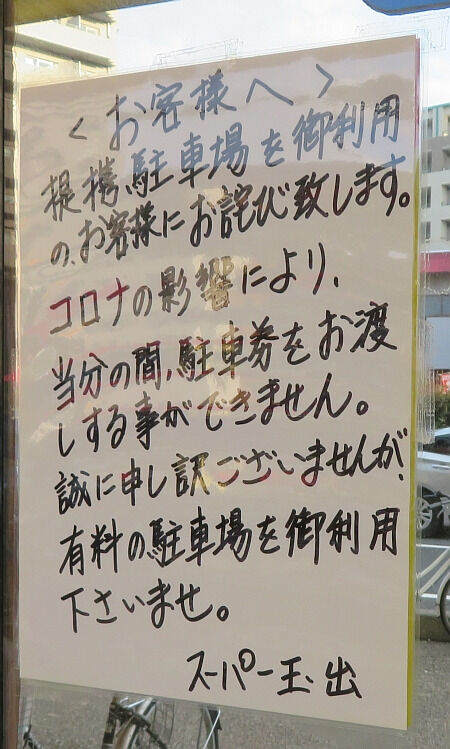 <お客様へ>
提携駐車場を御利用
の、お客様にお詫び致します。
コロナの影響により、
当分の間、駐車券をお渡
しする事ができません。
誠に申し訳ございませんが、
有料の駐車場を御利用
下さいませ。
スーパー玉出